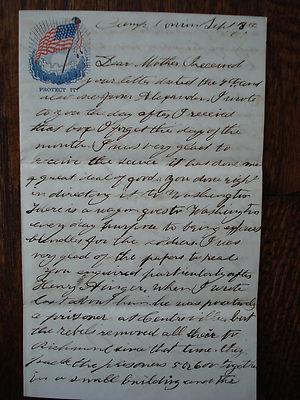 Camp Sept
PROTECT IT
Dear Mother I received
your letter dated the and
also one from Alexander. I wrote
to you the day after I received
that box I forget the day of the
month. I was very glad to
receive the it has done me
a great deal of good. You done right
in directing it to Washington
There is a wagon goes to Washington
every day purpose to bring
bundles for the soldiers I was
very glad of the papers to read
You enquired particularly after
Henry when I wrote
last about him he was positively
a prisoner at Centreville but
the rebels removed all there to
Richmond since that time. they
the prisoners 50 or 60 together
in a small building and the